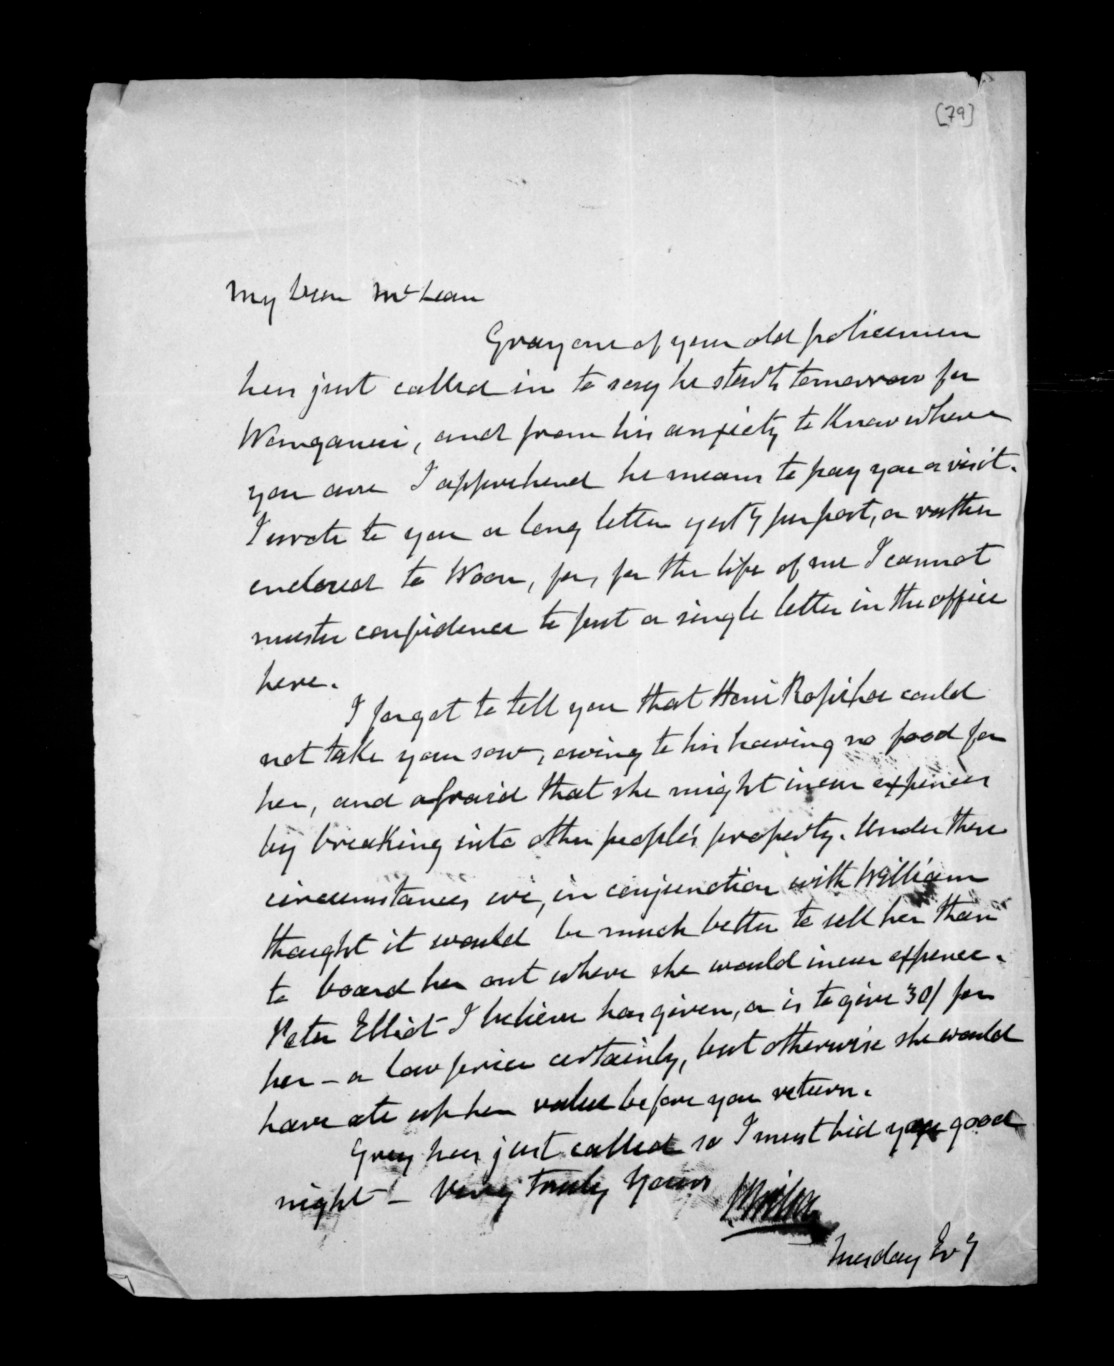 [79]
My Dear McLean
Gray one of your old policemen
has just called in to say he starts tomorrow for
Wanganui, and from his anxiety to know where
you are I apprehend he means to pay you a visit.
I wrote to you a long letter yesty per post, or rather
enclosed to Woon, for, for the life of me I cannot
muster confidence to put a single letter in the office
here.
I forgot to tell you that Honi Ropiha could
not take your sow, owing to his having no food for
her, and afraid that she might incur expences
by breaking into other people's property. Under these
circumstances we, in conjunction with William
thought it would be much better to sell her than
to board her out where she would incur expence.
Peter Elliot I believe has given, or is to give 30/ for
her – a low price certainly, but otherwise she would
have ate up her value before you return.
Gray has just called so I must bid you good
night – Very Truly Yours
Tuesday Evg